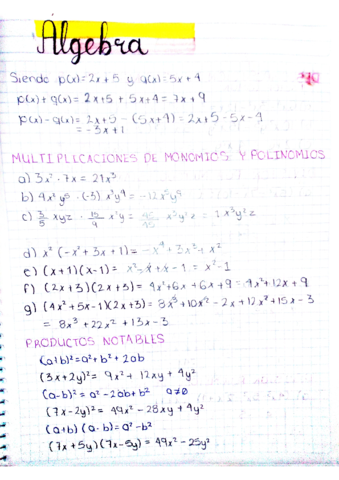 Álgebra
Siendo p(x)=2x+5 y q(x)=5x+4
p(x)+q(x)= 2x+5+5x+4= 7x+9
p(x)-q(x)= 2x+5-(5x+4)= 2x+5-5x-4
= -3x+1
MULTIPLICACIONES DE MONOMIOS Y POLINOMIOS
a) 3x² · 7x = 21x³
d) x² (-x²+3x+1)= -x⁴+3x³+x²
e) (x+1)(x-1)= x²-x+x-1 = x²-1
f) (2x+3)(2x+3)= 4x²+6x+6x+9= 4x²+12x+9
g) (4x²+5x-1)(2x+3)= 8x³+10x²-2x+12x²+15x-3
= 8x³+22x²+13x-3
PRODUCTOS NOTABLES
(a+b)²=a²+b²+2ab
(3x+2y)²= 9x²+12xy+4y²
(a-b)²=a²-2ab+b² a≠0
(7x-2y)²= 49x²-28xy+4y²
(a+b)(a-b)=a²-b²
(7x+5y)(7x-5y)= 49x²-25y²